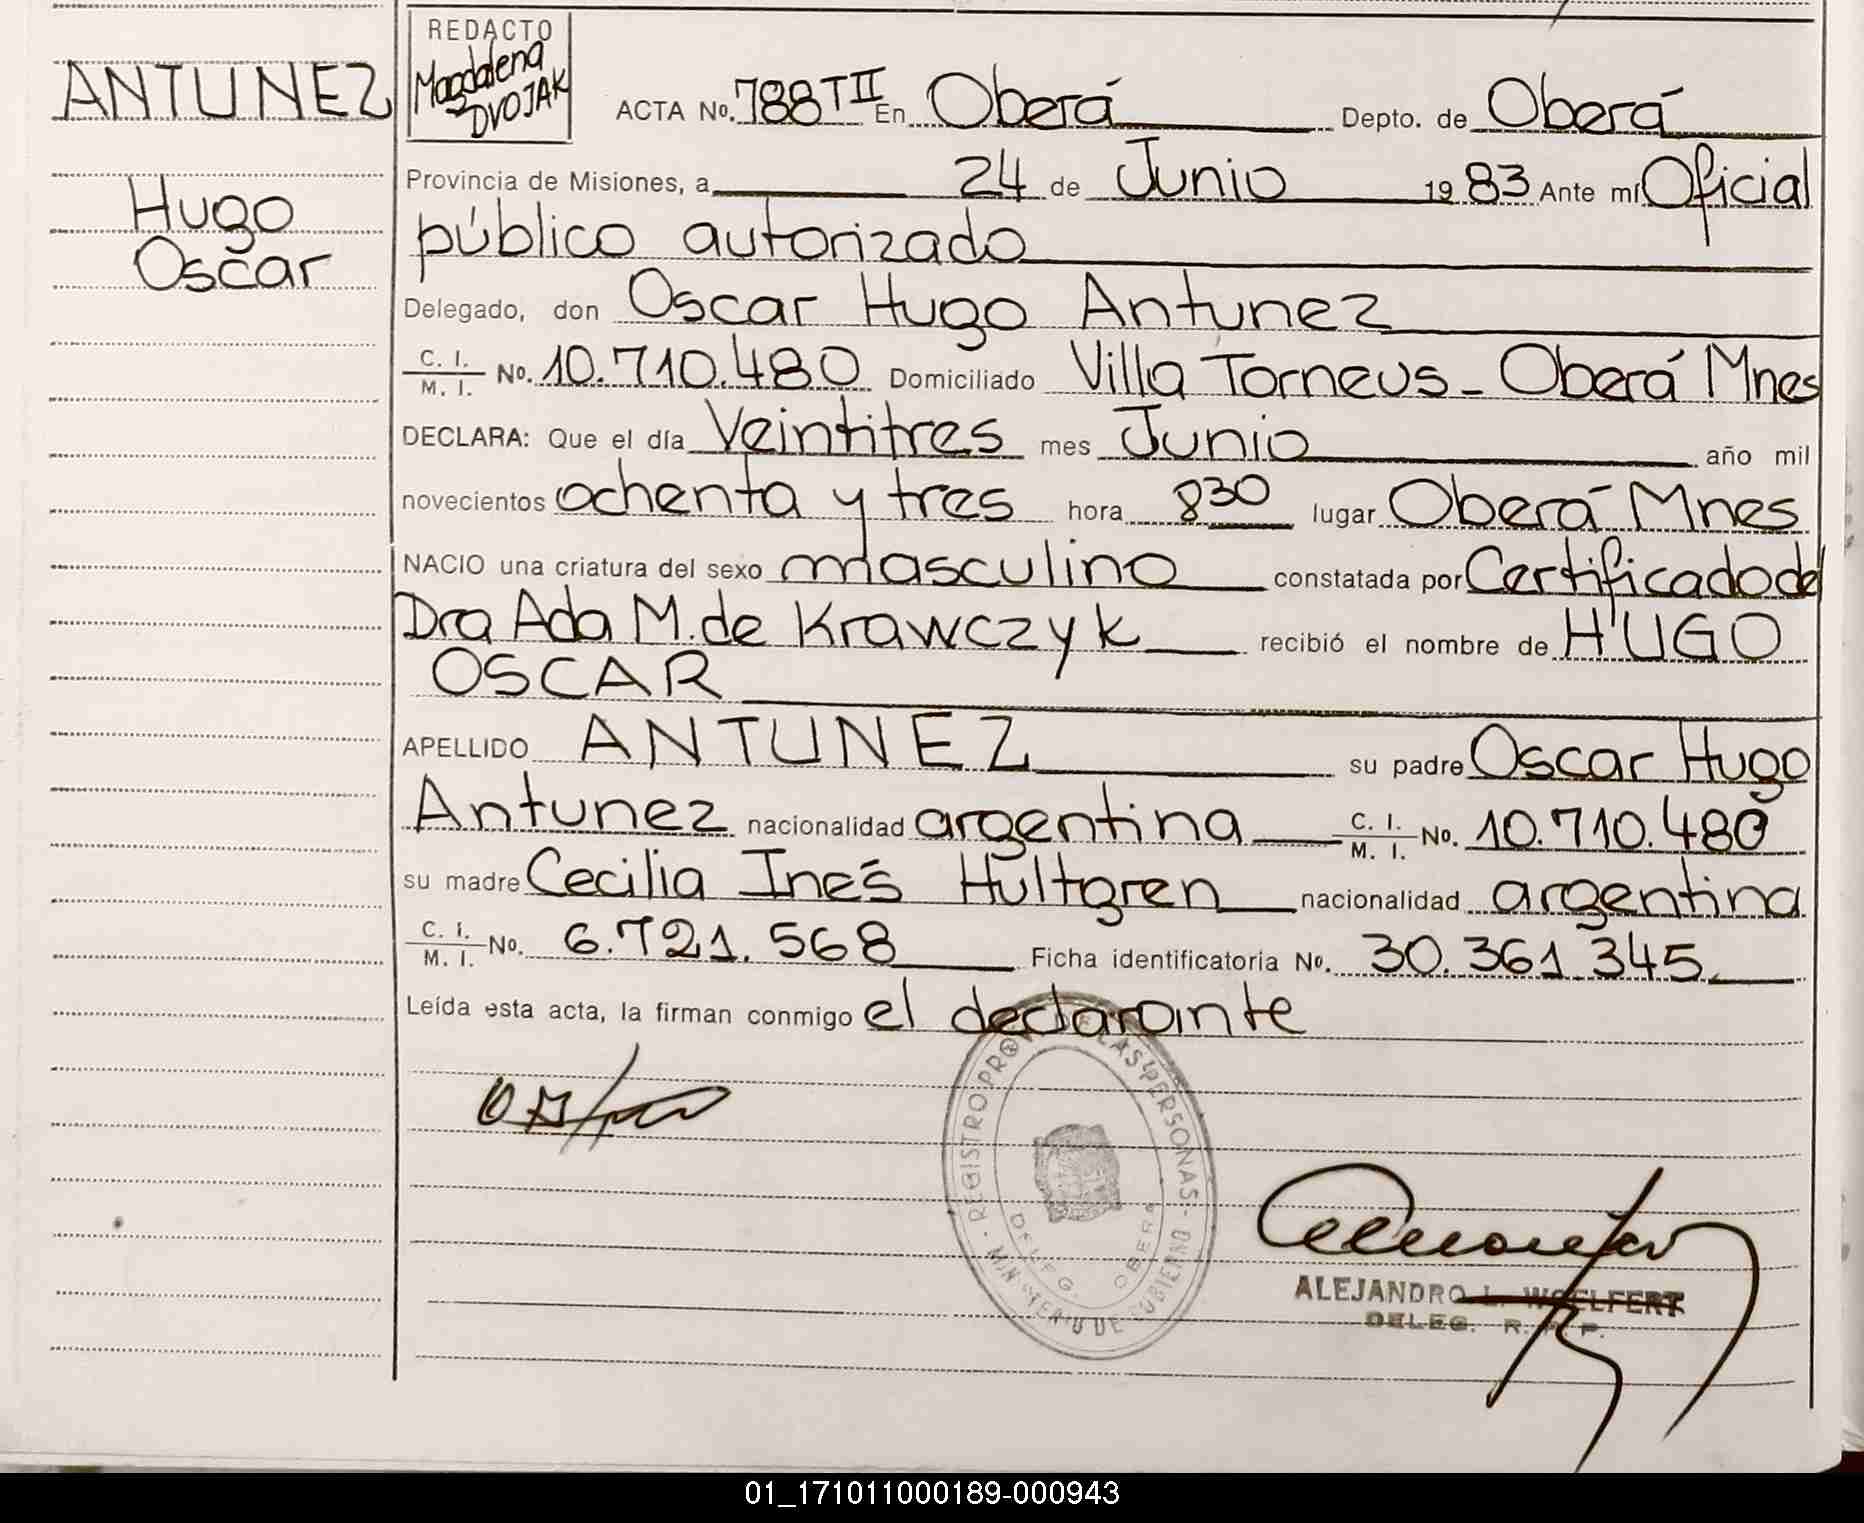 ANTUNEZ
Hugo
Oscar
REDACTO
Magdalena
DVOJAK
ACTA No. 788 T II En Oberá Depto. de Oberá
Provincia de Misiones, a 24 de Junio 19 83 Ante mí Oficial
público autorizado
Delegado, don Oscar Hugo Antunez
C. I. / M. I. No. 10.710.480 Domiciliado Villa Torneus - Oberá Mnes
DECLARA: Que el día Veintitres mes Junio año mil
novecientos ochenta y tres hora 8 30 lugar Oberá Mnes
NACIO una criatura del sexo masculino constatada por Certificado de
Dra Ada M. de Krawczyk recibió el nombre de HUGO
OSCAR
APELLIDO ANTUNEZ su padre Oscar Hugo
Antunez nacionalidad argentina C. I. / M. I. No. 10.710.480
su madre Cecilia Inés Hultgren nacionalidad argentina
C. I. / M. I. No. 6.721.568 Ficha identificatoria No. 30.361.345
Leída esta acta, la firman conmigo el declarante
REGISTRO PROV. DE LAS PERSONAS - MINISTERIO DE GOBIERNO -
DELEG. OBERA
ALEJANDRO L. WOELFERT
DELEG. R. P. P.
01_171011000189-000943